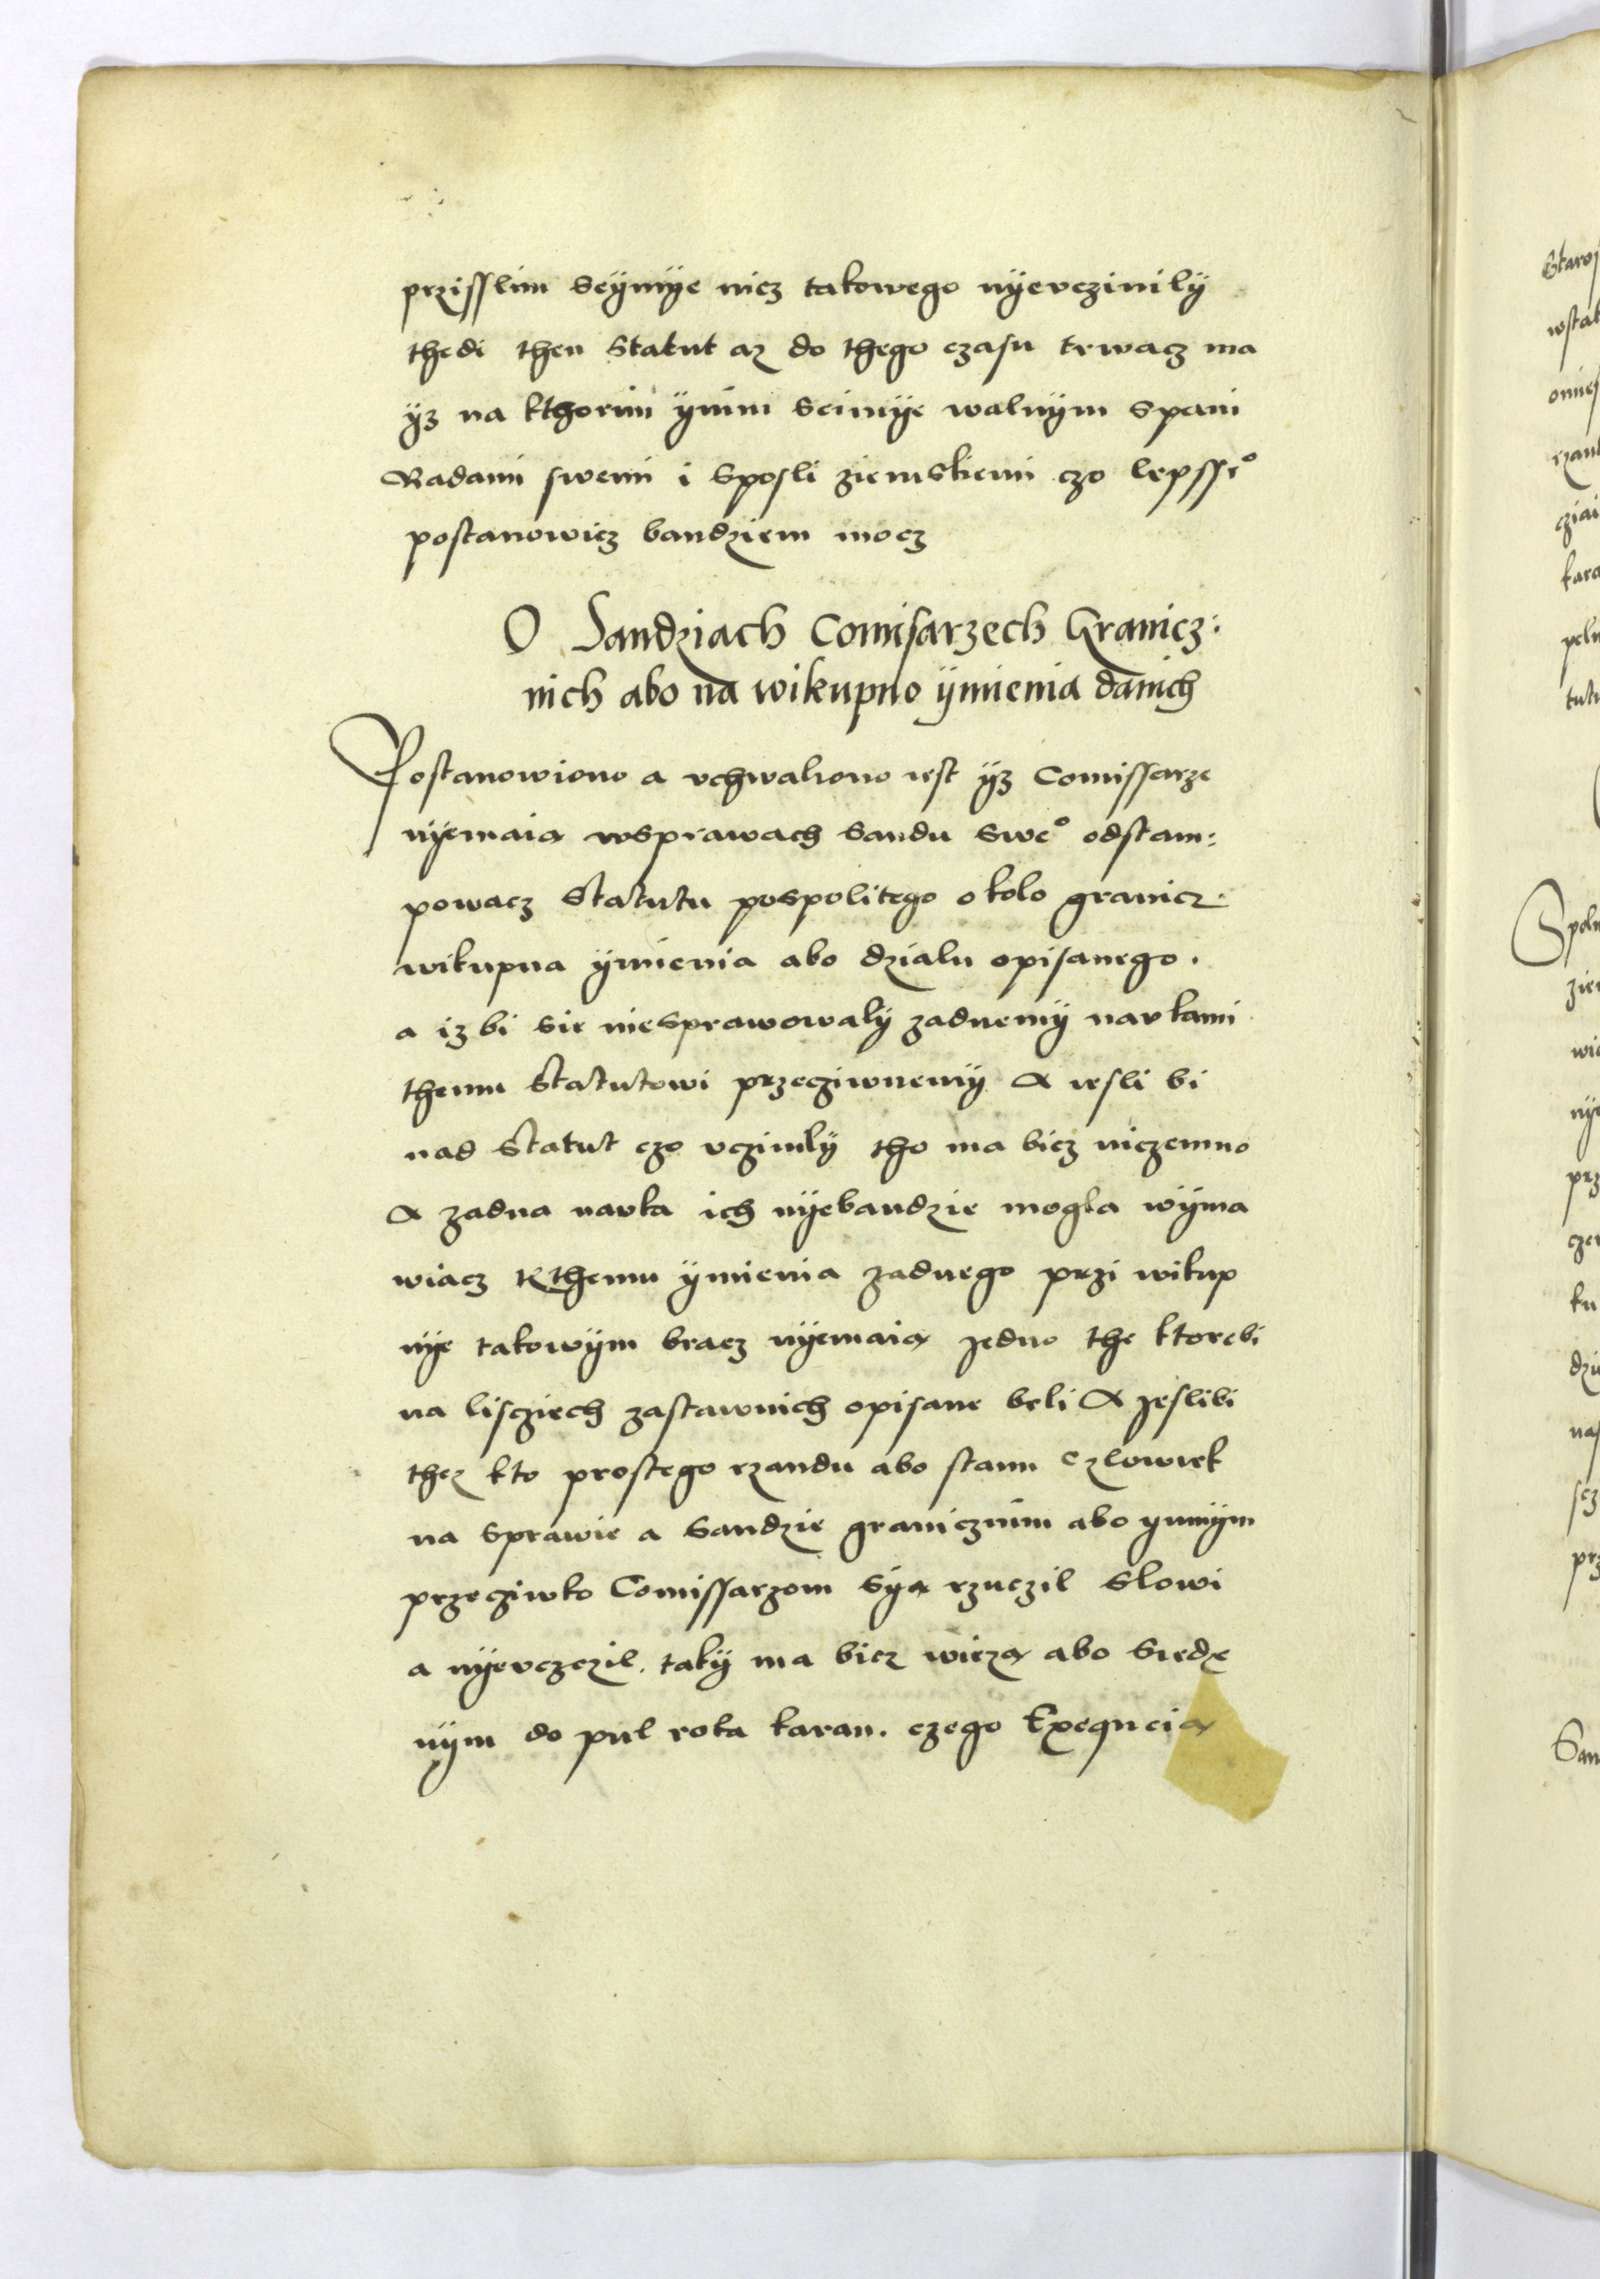 przisslim Seÿmÿe nicz takowego nÿevczinilÿ
thedi then Statut az do thego czasu trwacz ma
ÿz na kthorim ÿnim Seimÿe walnÿm Spani
Radami swemi i Sposli ziemskiemi czo lepsse°
postanowicz bandziem mocz
O Sandziach Comisarzech Granicz:
nich abo na wikupno ÿmienia danich
Postanowiono a vchwaliono iest ÿz Comissarze
nÿemaia wsprawach Sandu Swe° odstam:
powacz Statutu pospolitego okolo granicz.
wikupna ÿmienia abo dzialu opisanego.
a iz bi sie niesprawowalÿ zadnemÿ naukami
themu Statutowi przeciwnemÿ A iesli bi
nad Statut czo vczinilÿ tho ma bicz niczemno
A zadna nauka ich nÿebandzie mogla wÿma
wiacz kthemu ÿmienia zadnego przi wikup
nÿe takowÿm bracz nÿemaia Jedno the ktorebi
na lisciech zastawnich opisane beli A Jeslibi
thez kto prostego rzandu abo stanu czlowiek
na Sprawie a Sandzie granicznim abo ynnÿm
przeciwko Comissarzom Sÿa rzuczil Slowi
a nÿevczczil. takÿ ma bicz wieza abo Siedze
nÿm do pul roka karan. czego Exequcia